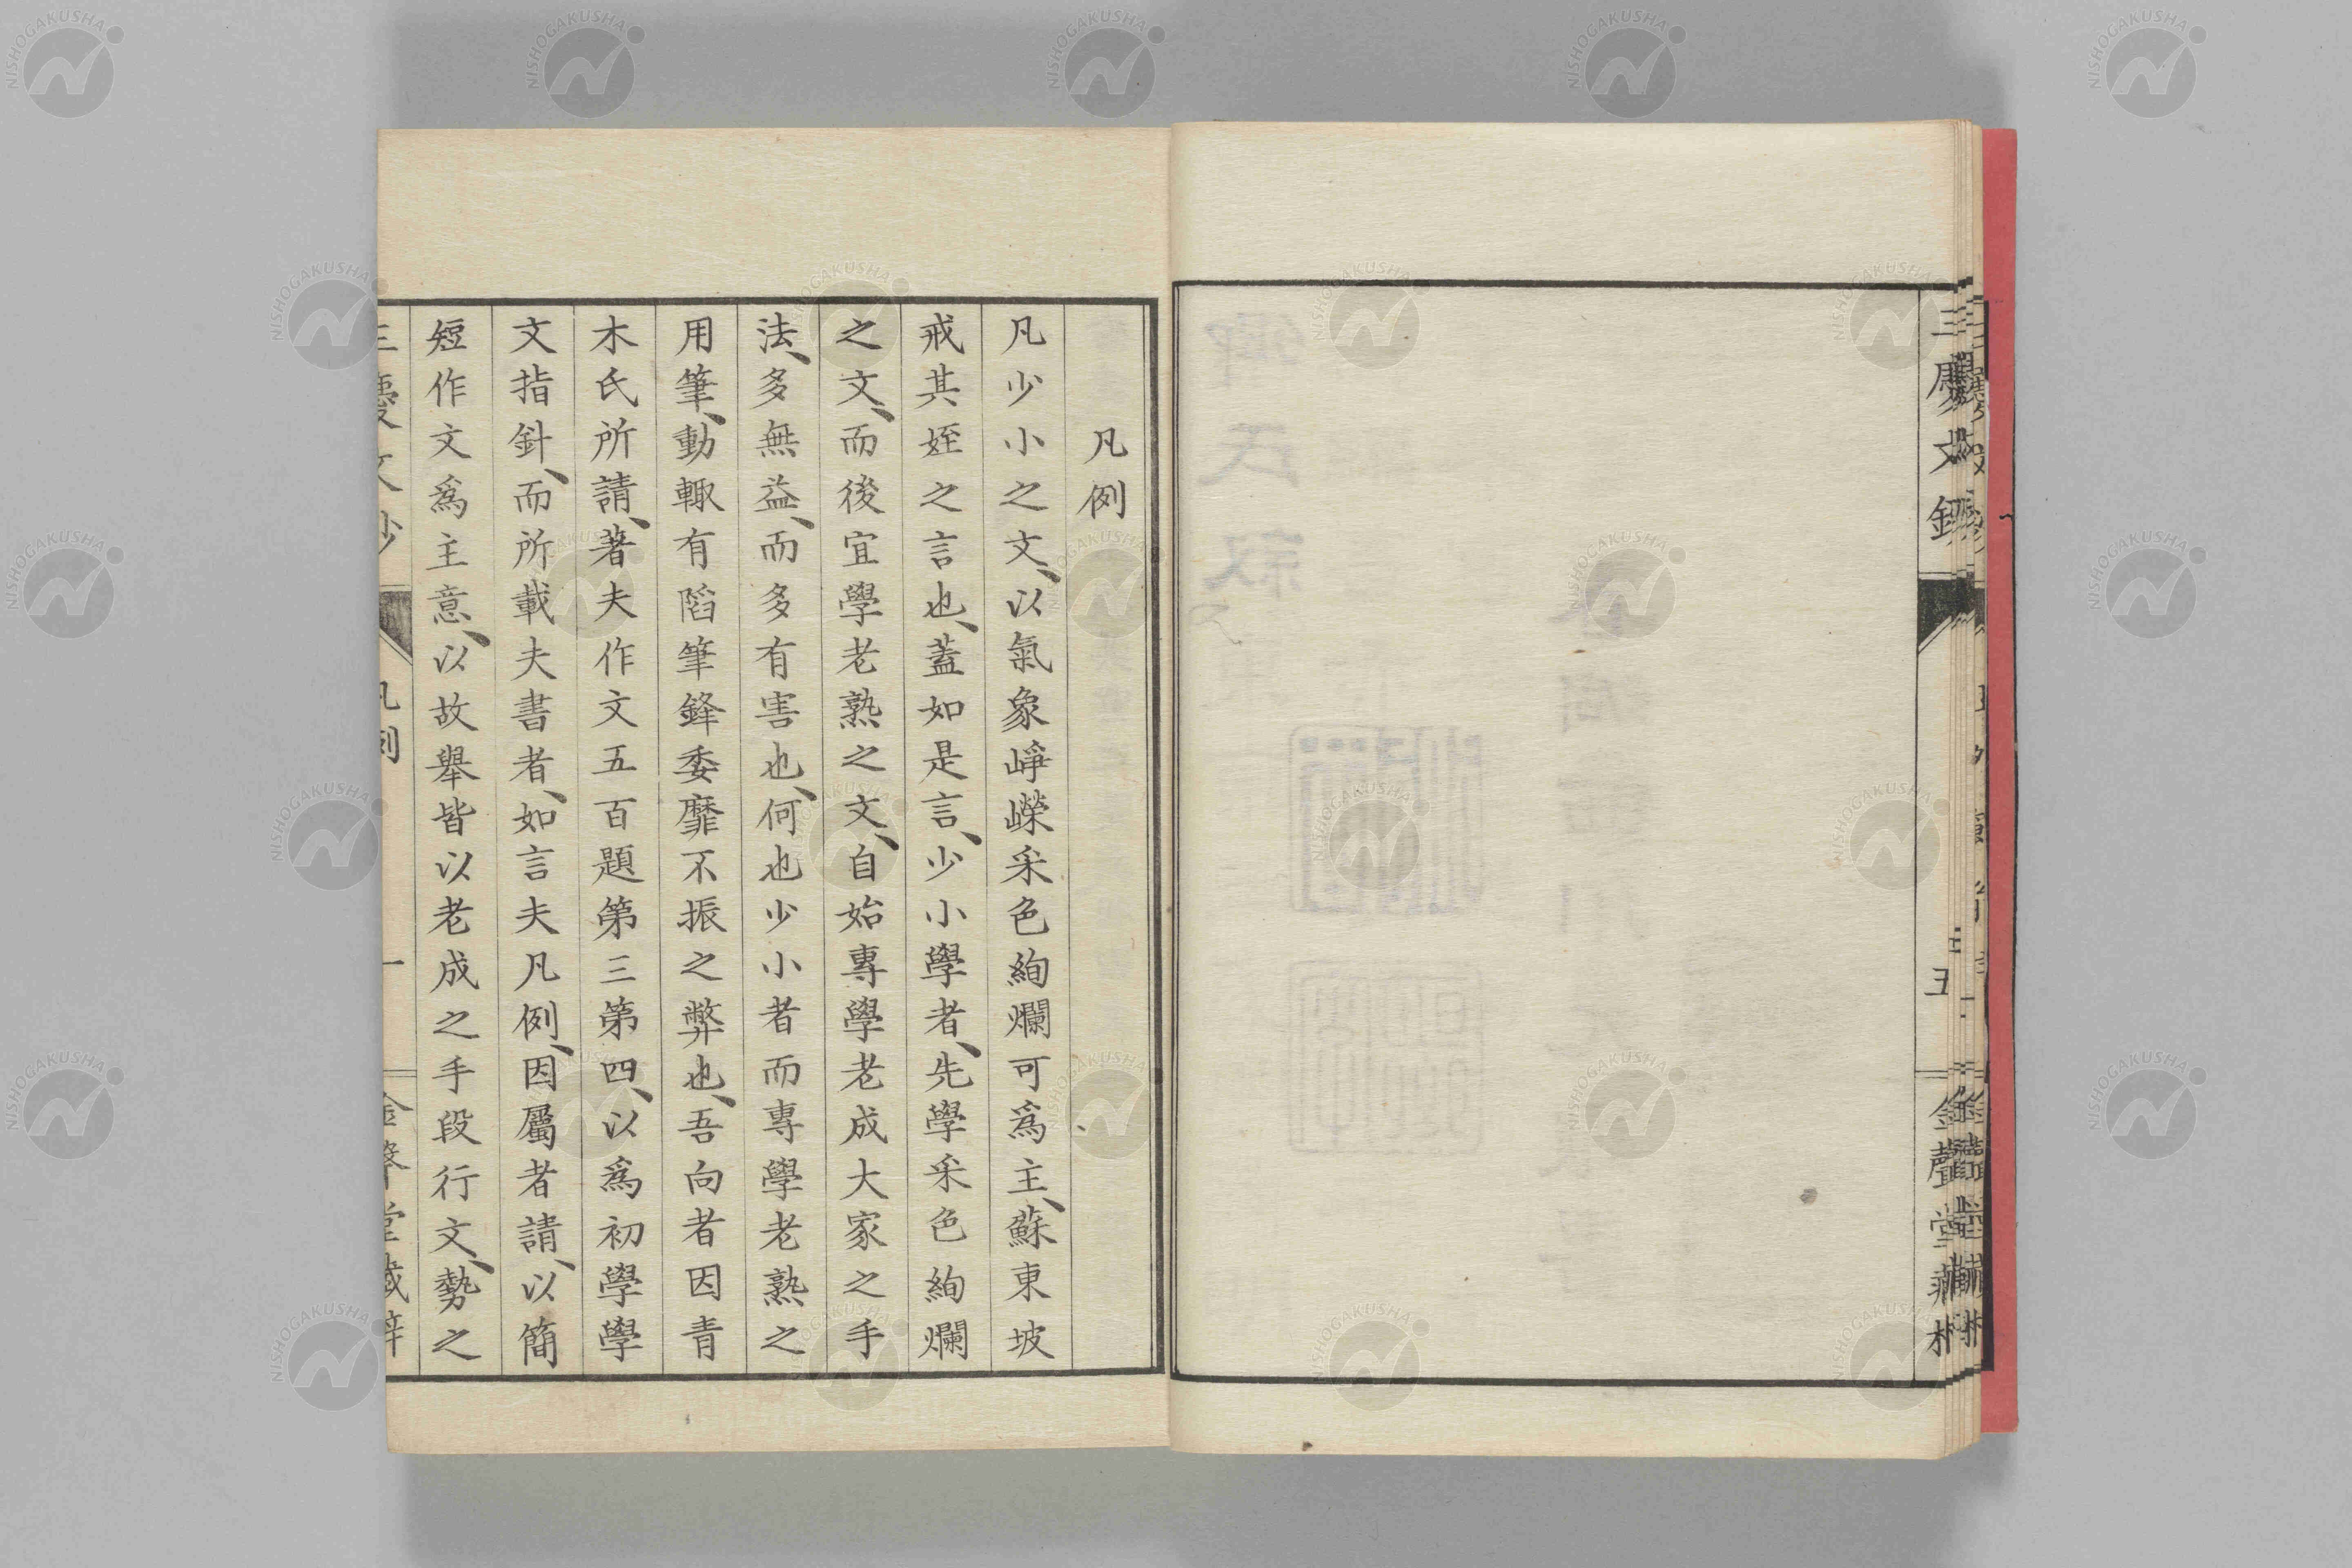 凡例
凡少小之文、以氣象崢嶸采色絢爛可爲主、蘇東坡
戒其姪之言也、蓋如是言、少小學者、先學采色絢爛
之文、而後宜學老熟之文、自始專學老成大家之手
法、多無益、而多有害也、何也少小者而專學老熟之
用筆、動輙有陷筆鋒委靡不振之弊也、吾向者因青
木氏所請、著夫作文五百題第三第四、以爲初學學
文指針、而所載夫書者、如言夫凡例、因屬者請、以簡
短作文爲主意、以故舉皆以老成之手段行文、勢之
凡例
一
三慶文鈔
五
金聲堂藏梓
NISHOGAKUSHA